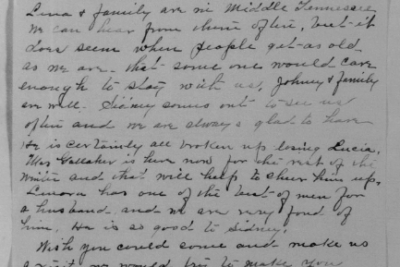 Lena & family are in Middle Tennessee
We can hear from them often, but it
does seem when people get as old
as we are that some one would care
enough to stay with us, Johney & family
are well. Sidney comes out to see us
often and we are always glad to have
He is certainly all broken up losing Lucia.
Mrs Gallaher is here now for the rest of the
winter and that will help to cheer him up.
Lenora has one of the best of men for
a husband, and we are very fond of
him. He is so good to Sidney.
Wish you could come and make us
a visit, we would try to make you